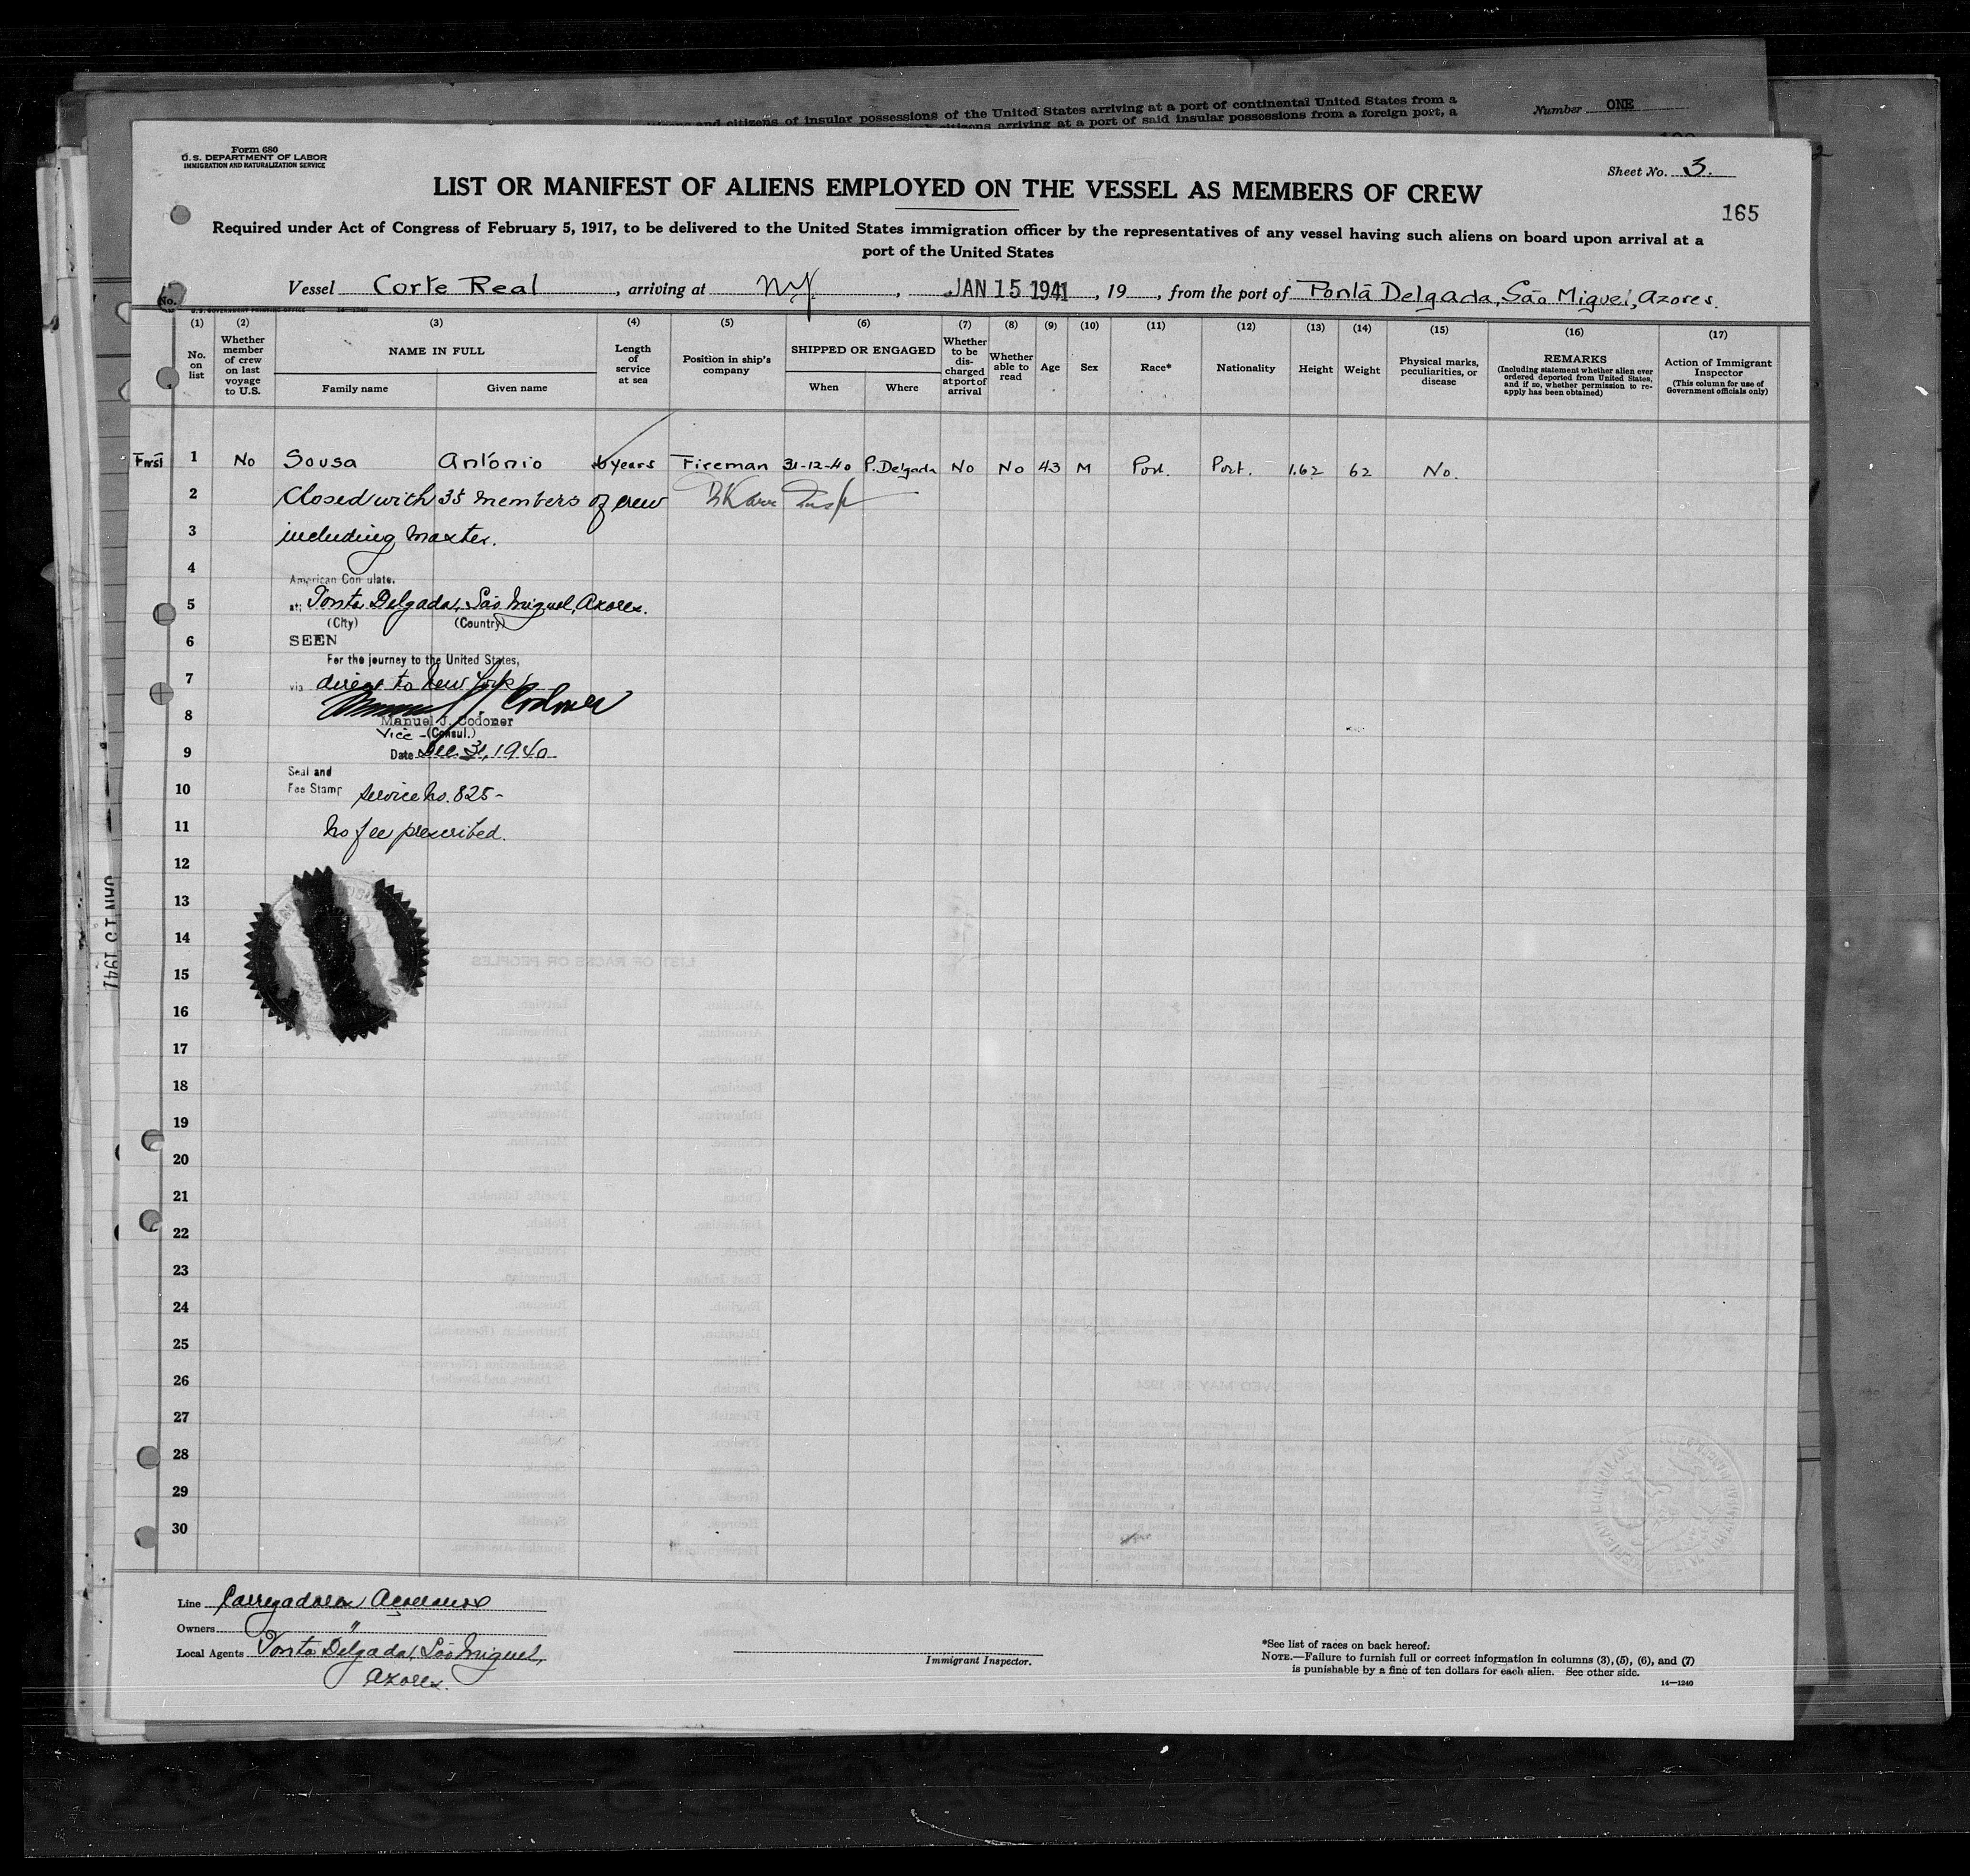 insular possessions of the United States arriving at a port of continental United States from a
citizens arriving at a port of said insular possessions from a foreign port, a
Number ONE
Form 680
U.S. DEPARTMENT OF LABOR
IMMIGRATION AND NATURALIZATION SERVICE
Sheet No. 3.
LIST OR MANIFEST OF ALIENS EMPLOYED ON THE VESSEL AS MEMBERS OF CREW
165
Required under Act of Congress of February 5, 1917, to be delivered to the United States immigration officer by the representatives of any vessel having such aliens on board upon arrival at a
port of the United States
Vessel Corte Real, arriving at N.Y., JAN 15 1941, 19, from the port of Ponta Delgada, São Miguel, Azores.
No.
U.S. GOVERNMENT PRINTING OFFICE 14-1240
(1) (2) (3) (4) (5) (6) (7) (8) (9) (10) (11) (12) (13) (14) (15) (16) (17)
No. on list
Whether member of crew on last voyage to U.S.
NAME IN FULL
Family name
Given name
Length of service at sea
Position in ship's company
SHIPPED OR ENGAGED
When
Where
Whether to be discharged at port of arrival
Whether able to read
Age
Sex
Race*
Nationality
Height
Weight
Physical marks, peculiarities, or disease
REMARKS
(Including statement whether alien ever ordered deported from United States, and if so, whether permission to reapply has been obtained)
Action of Immigrant Inspector
(This column for use of Government officials only)
First 1 No Sousa António years Fireman 31-12-40 P. Delgada No No 43 M Port. Port. 1.62 62 No.
2 Closed with 35 members of crew
3 including Master.
4
American Consulate.
5 at: Ponta Delgada, São Miguel, Azores.
(City) (Country)
6 SEEN
For the journey to the United States,
7 via direct to New York
8
Manuel J. Codoner
Vice-(Consul.)
9 Date Dec. 31, 1940
Seal and
10 Fee Stamp Service No. 825-
11 No fee prescribed.
12
13
14
15
16
17
18
19
20
21
22
23
24
25
26
27
28
29
30
JAN 15 1941
Line Carregadores Açoreanos
Owners "
Local Agents Ponta Delgada, São Miguel,
Azores.
Immigrant Inspector.
*See list of races on back hereof.
NOTE.—Failure to furnish full or correct information in columns (3), (5), (6), and (7)
is punishable by a fine of ten dollars for each alien. See other side.
14—1240